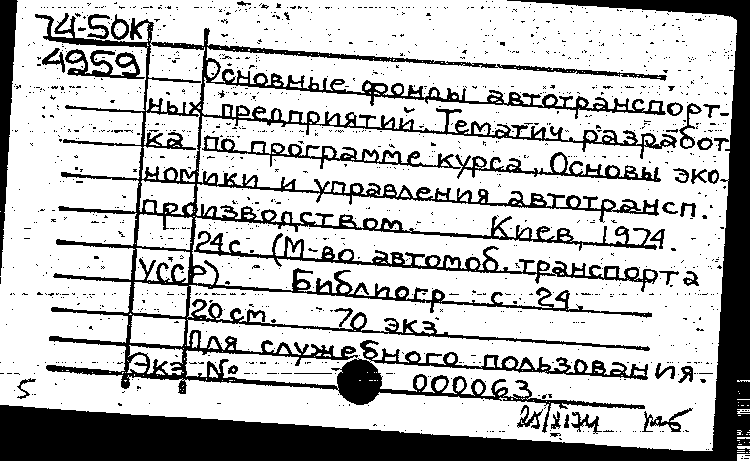 74-50К
4959
Основные фонды автотранспорт-
ных предприятий. Тематич. разработ
ка по программе курса „Основы эко-
номики и управления автотрансп.
производством. Киев, 1974.
24 с. (М-во автомоб. транспорта
УССР). Библиогр с. 24.
20 см. 70 экз.
Для служебного пользования.
Экз. № 000063.
25/XI74
5